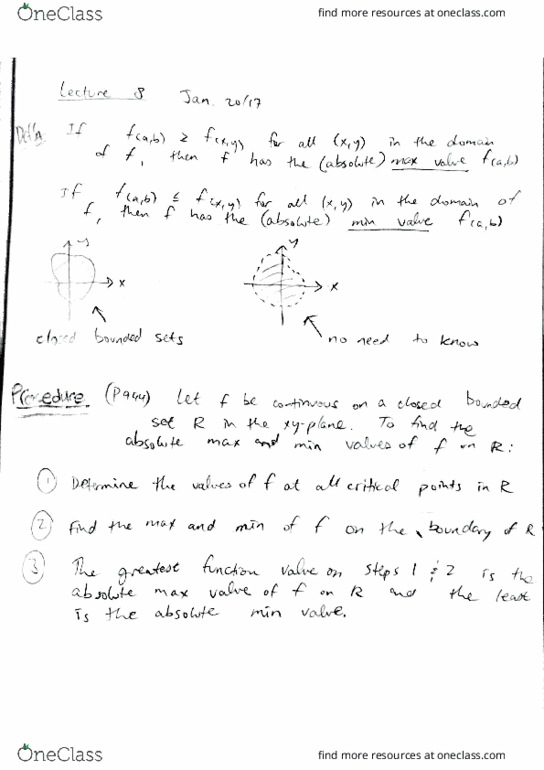 OneClass
find more resources at oneclass.com
Lecture 8 Jan. 20/17
If f(a,b) ≥ f(x,y) for all (x,y) in the domain
of f, then f has the (absolute) max value f(a,b)
If f(a,b) ≤ f(x,y) for all (x,y) in the domain of
f, then f has the (absolute) min value f(a,b)
y y
x x
closed bounded sets
no need to know
Procedure (P944) Let f be continuous on a closed bounded
set R in the xy-plane. To find the
absolute max and min values of f on R:
① Determine the values of f at all critical points in R
② Find the max and min of f on the boundary of R
③ The greatest function value on steps 1 & 2 is the
absolute max value of f on R and the least
is the absolute min value.
OneClass
find more resources at oneclass.com